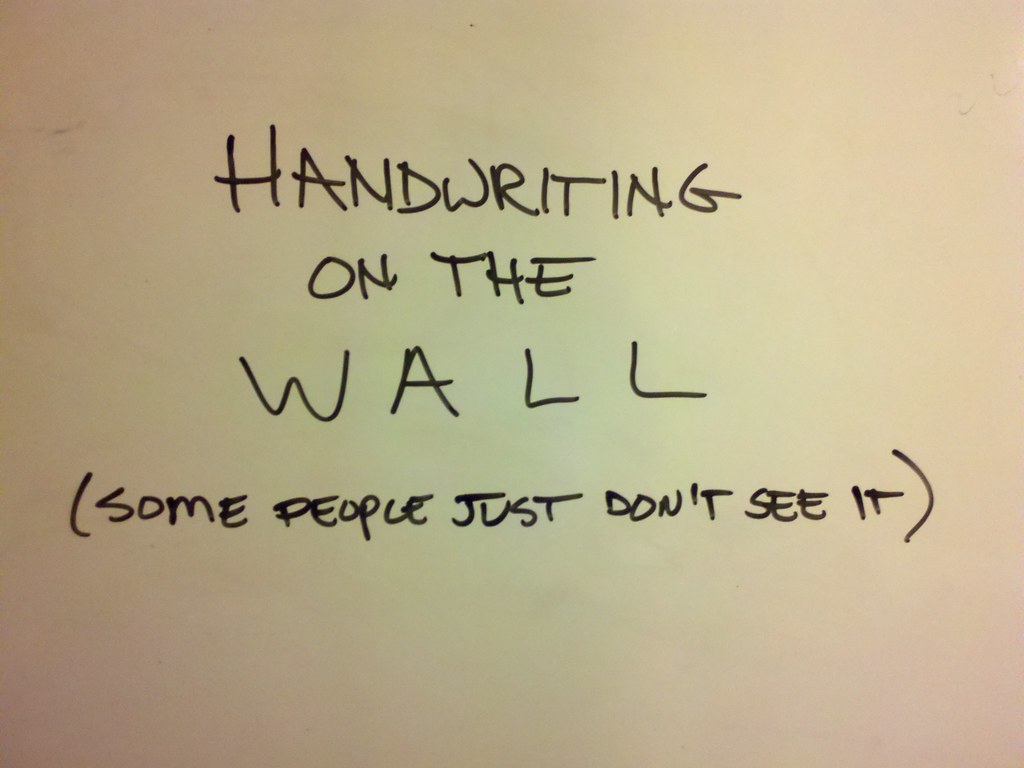 HANDWRITING
ON THE
WALL
(SOME PEOPLE JUST DON'T SEE IT)